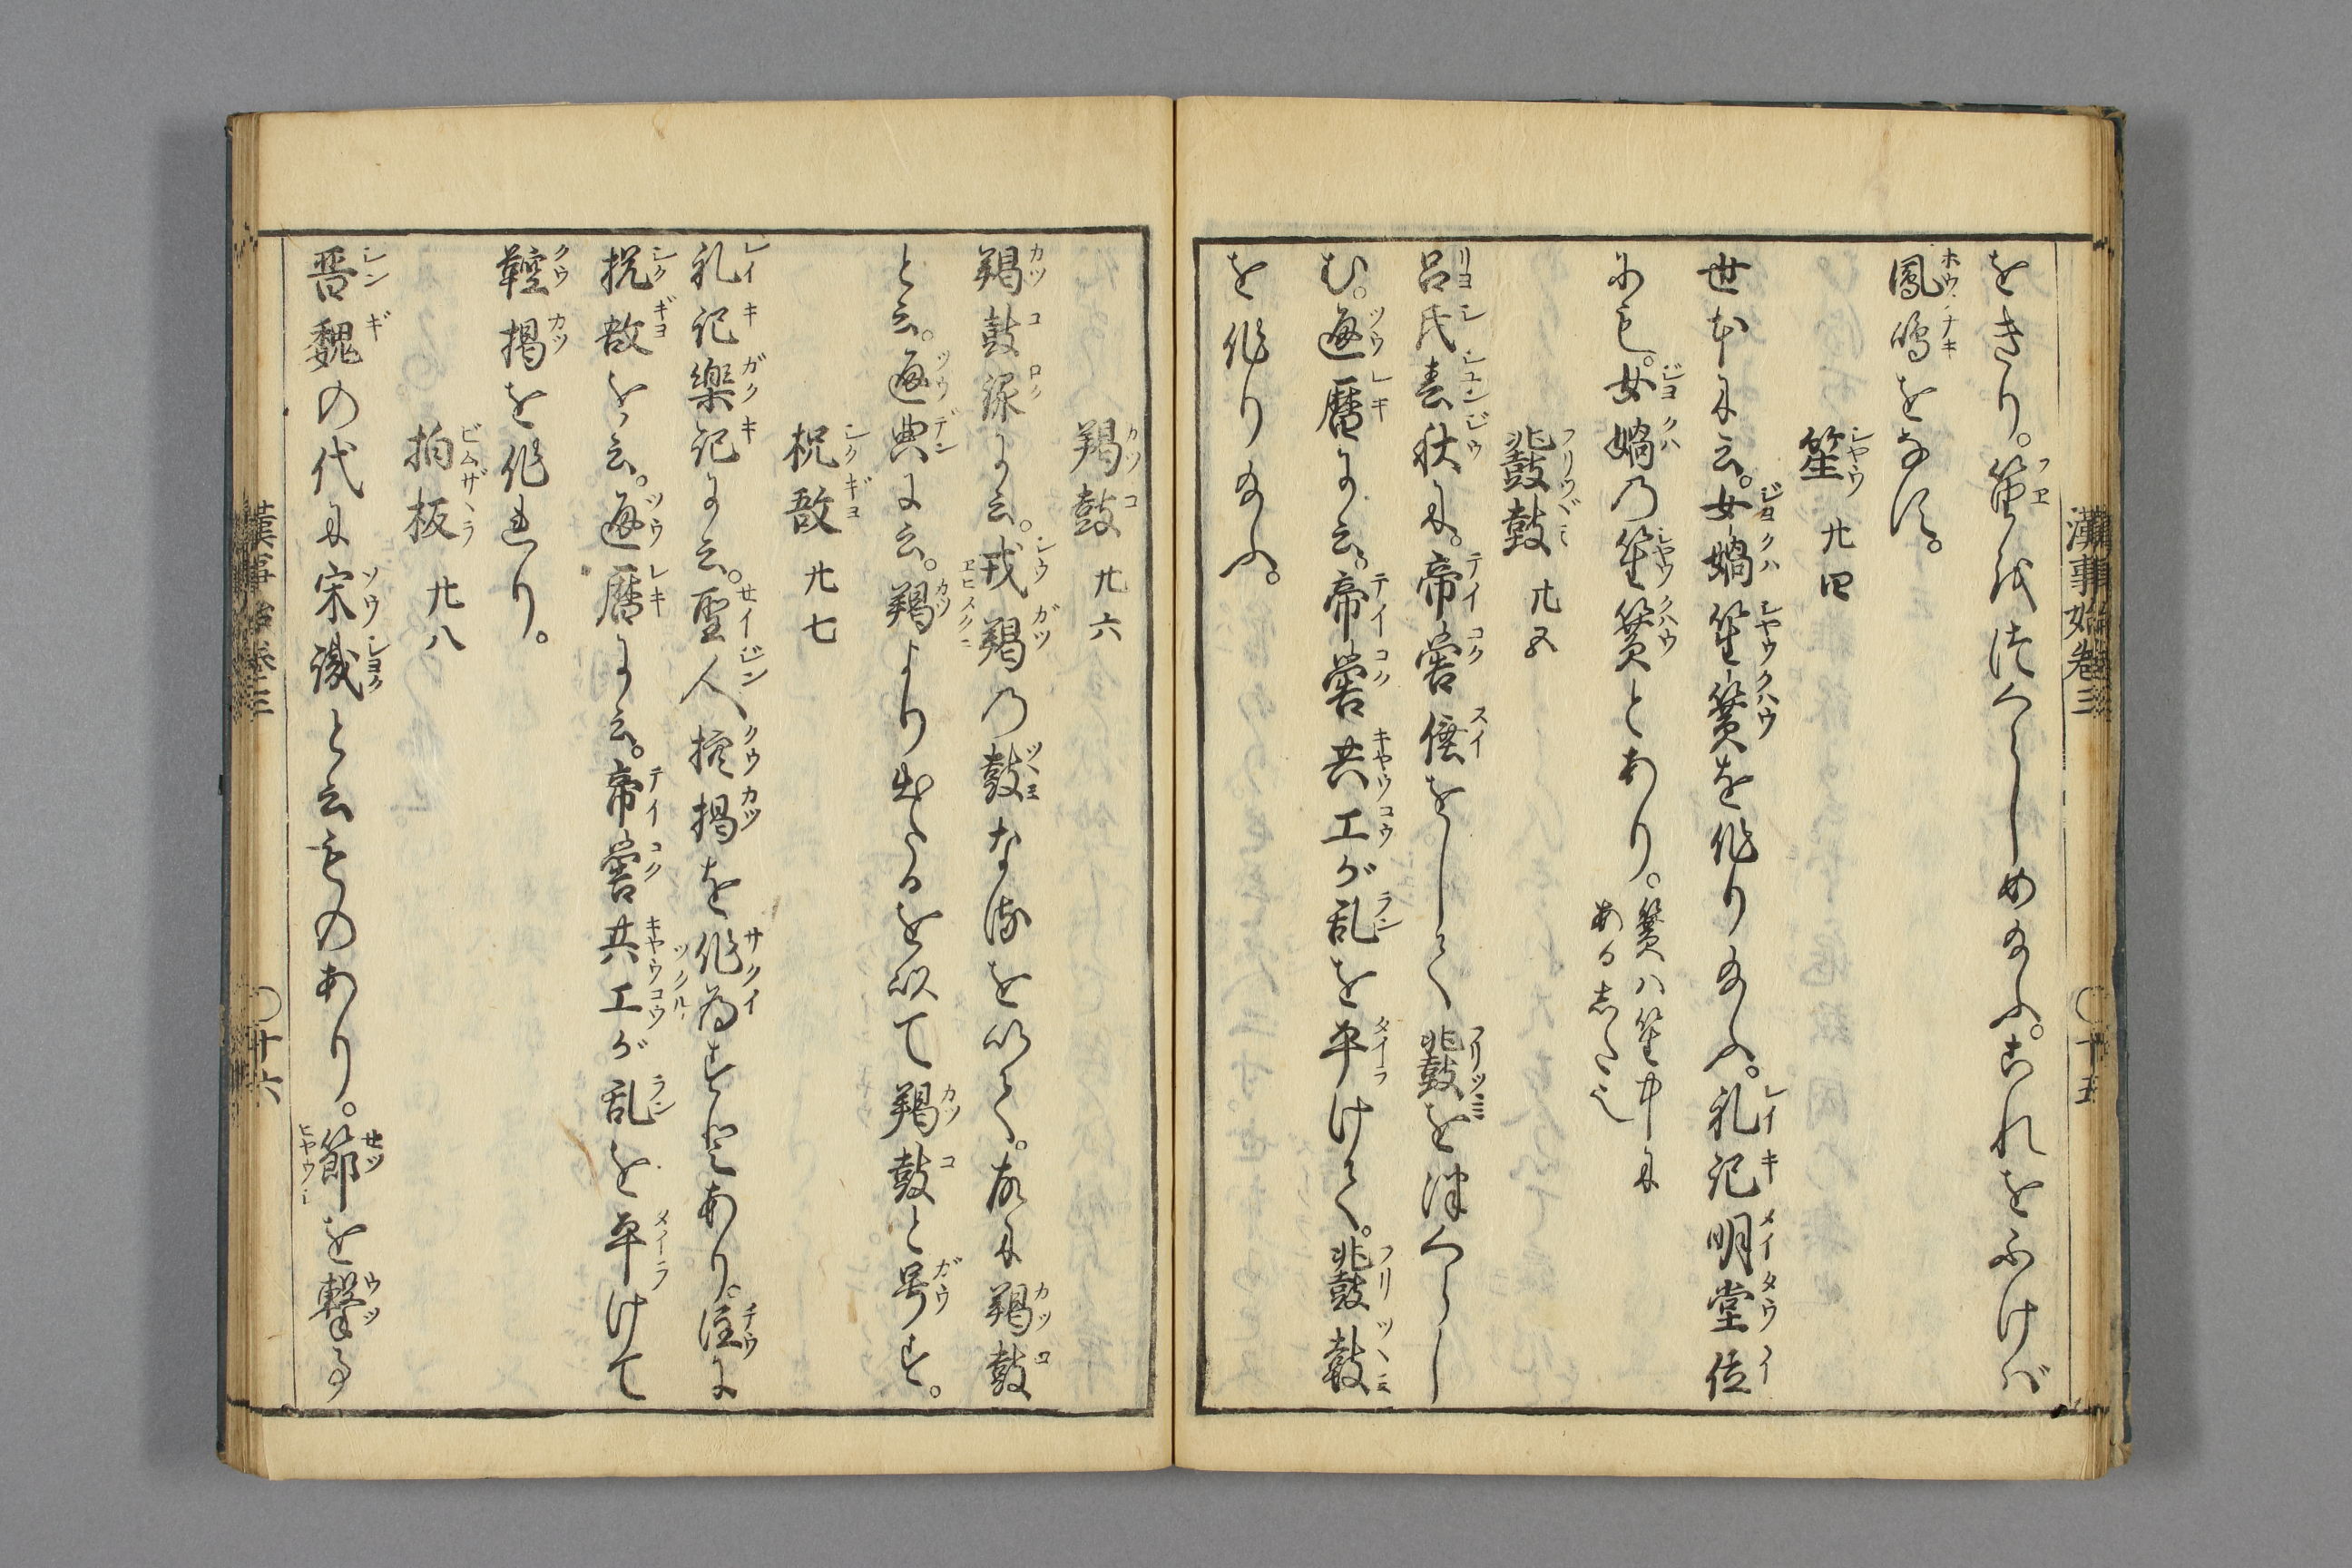 をきり。笛を作くらしめ給ふ。これをふけバ
鳳鳴をなす。
笙 廿四
世本に云。女媧笙簧を作り給ふ。礼記明堂位
にも。女媧の笙簧とあり。簧ハ笙中に
あるした也
鼗鼓 廿五
呂氏春秋に。帝嚳倕をして鼗を作くらし
む。通暦に云。帝嚳共工が乱を平けて。鼗鼓
を作り給ふ。
漢事始巻三 〇十五
羯鼓 廿六
羯鼓録に云。戎羯の鼓なるを以て。故に羯鼓
と云。通典に云。羯より出たるを以て羯鼓と号す。
柷敔 廿七
礼記楽記に云。聖人椌楬を作為すとあり。註に
柷敔を云。通暦に云。帝嚳共工が乱を平けて
鞚楬を作れり。
拍板 廿八
晋魏の代に宋識と云ものあり。節を撃る
漢事始巻三 〇十六